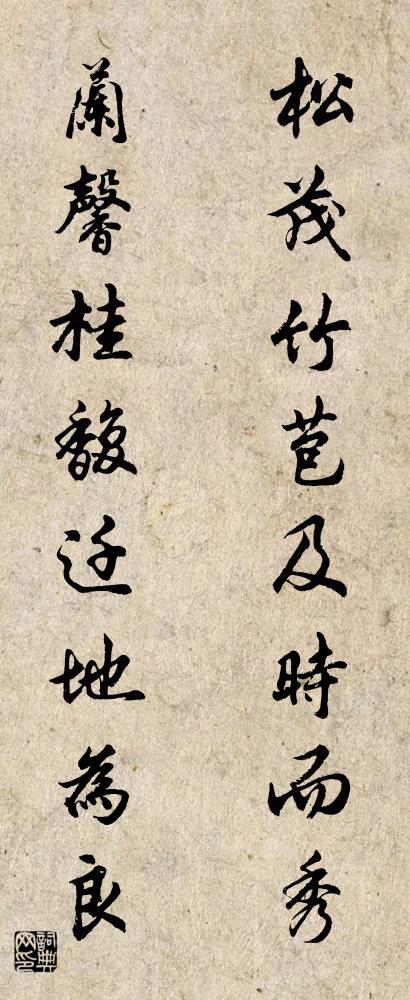 松茂竹苞及時而秀
蘭馨桂馥迁地為良
詞典
网印